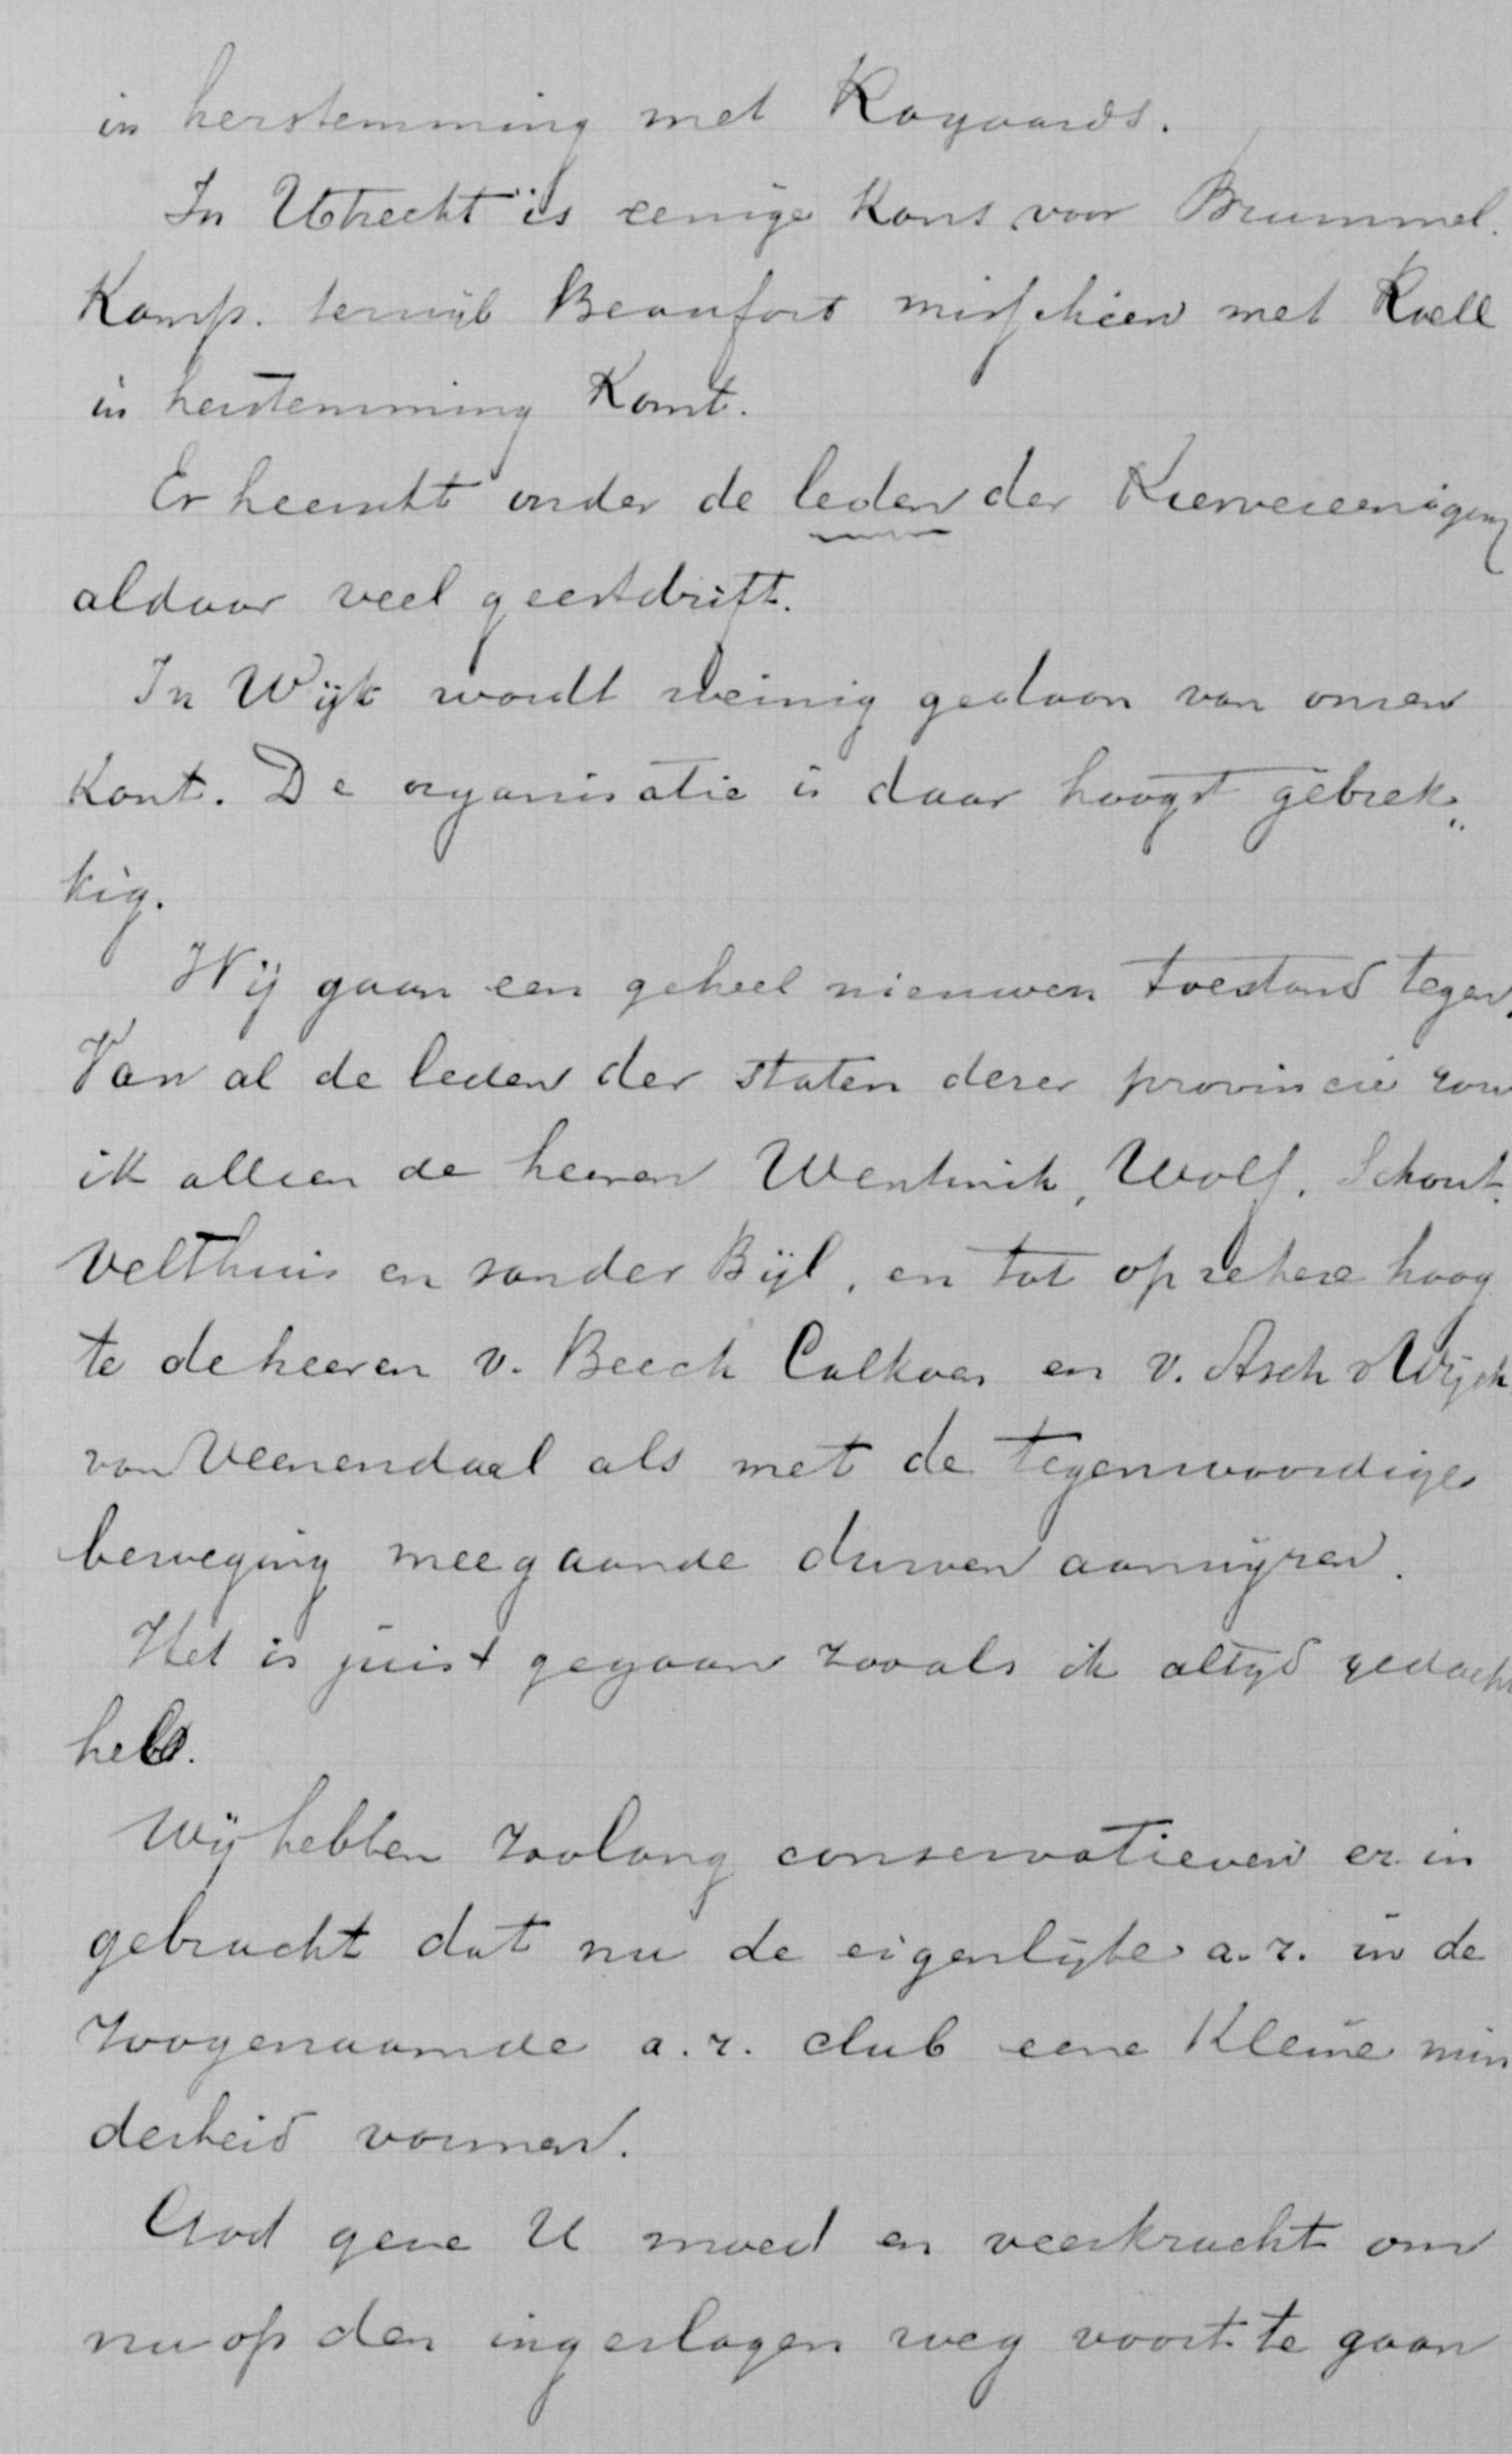 in herstemming met Royaards.
In Utrecht is eenige kans voor Brummel.
Kamp. terwijl Beaufort misschien met Roell
in herstemming Komt.
Er heerscht onder de leden der Kiesvereeniging
aldaar veel geestdrift.
In Wijk wordt weinig gedaan van onzen
Kant. De organisatie is daar hoogst gebrek„
kig.
Wij gaan een geheel nieuwen toestand tegen,
Van al de leden der Staten dezer provincie zou
ik alleen de heeren Wentinck, Wolf, Schout.
Velthuis en van der Bijl, en tot op zekere hoog
te de heeren v. Beeck Calkoen en v. Asch v Wijck
van Veenendaal als met de tegenwoordige
beweging meegaande durven aanwijzen.
Het is juist gegaan zooals ik altyd gedacht
heb.
Wij hebben zoolang conservatieven er in
gebracht dat nu de eigenlijke a.r. in de
zoogenaamde a.r. club eene Kleine min
derheid vormen.
God geve U moed en veerkracht om
nu op den ingeslagen weg voort te gaan